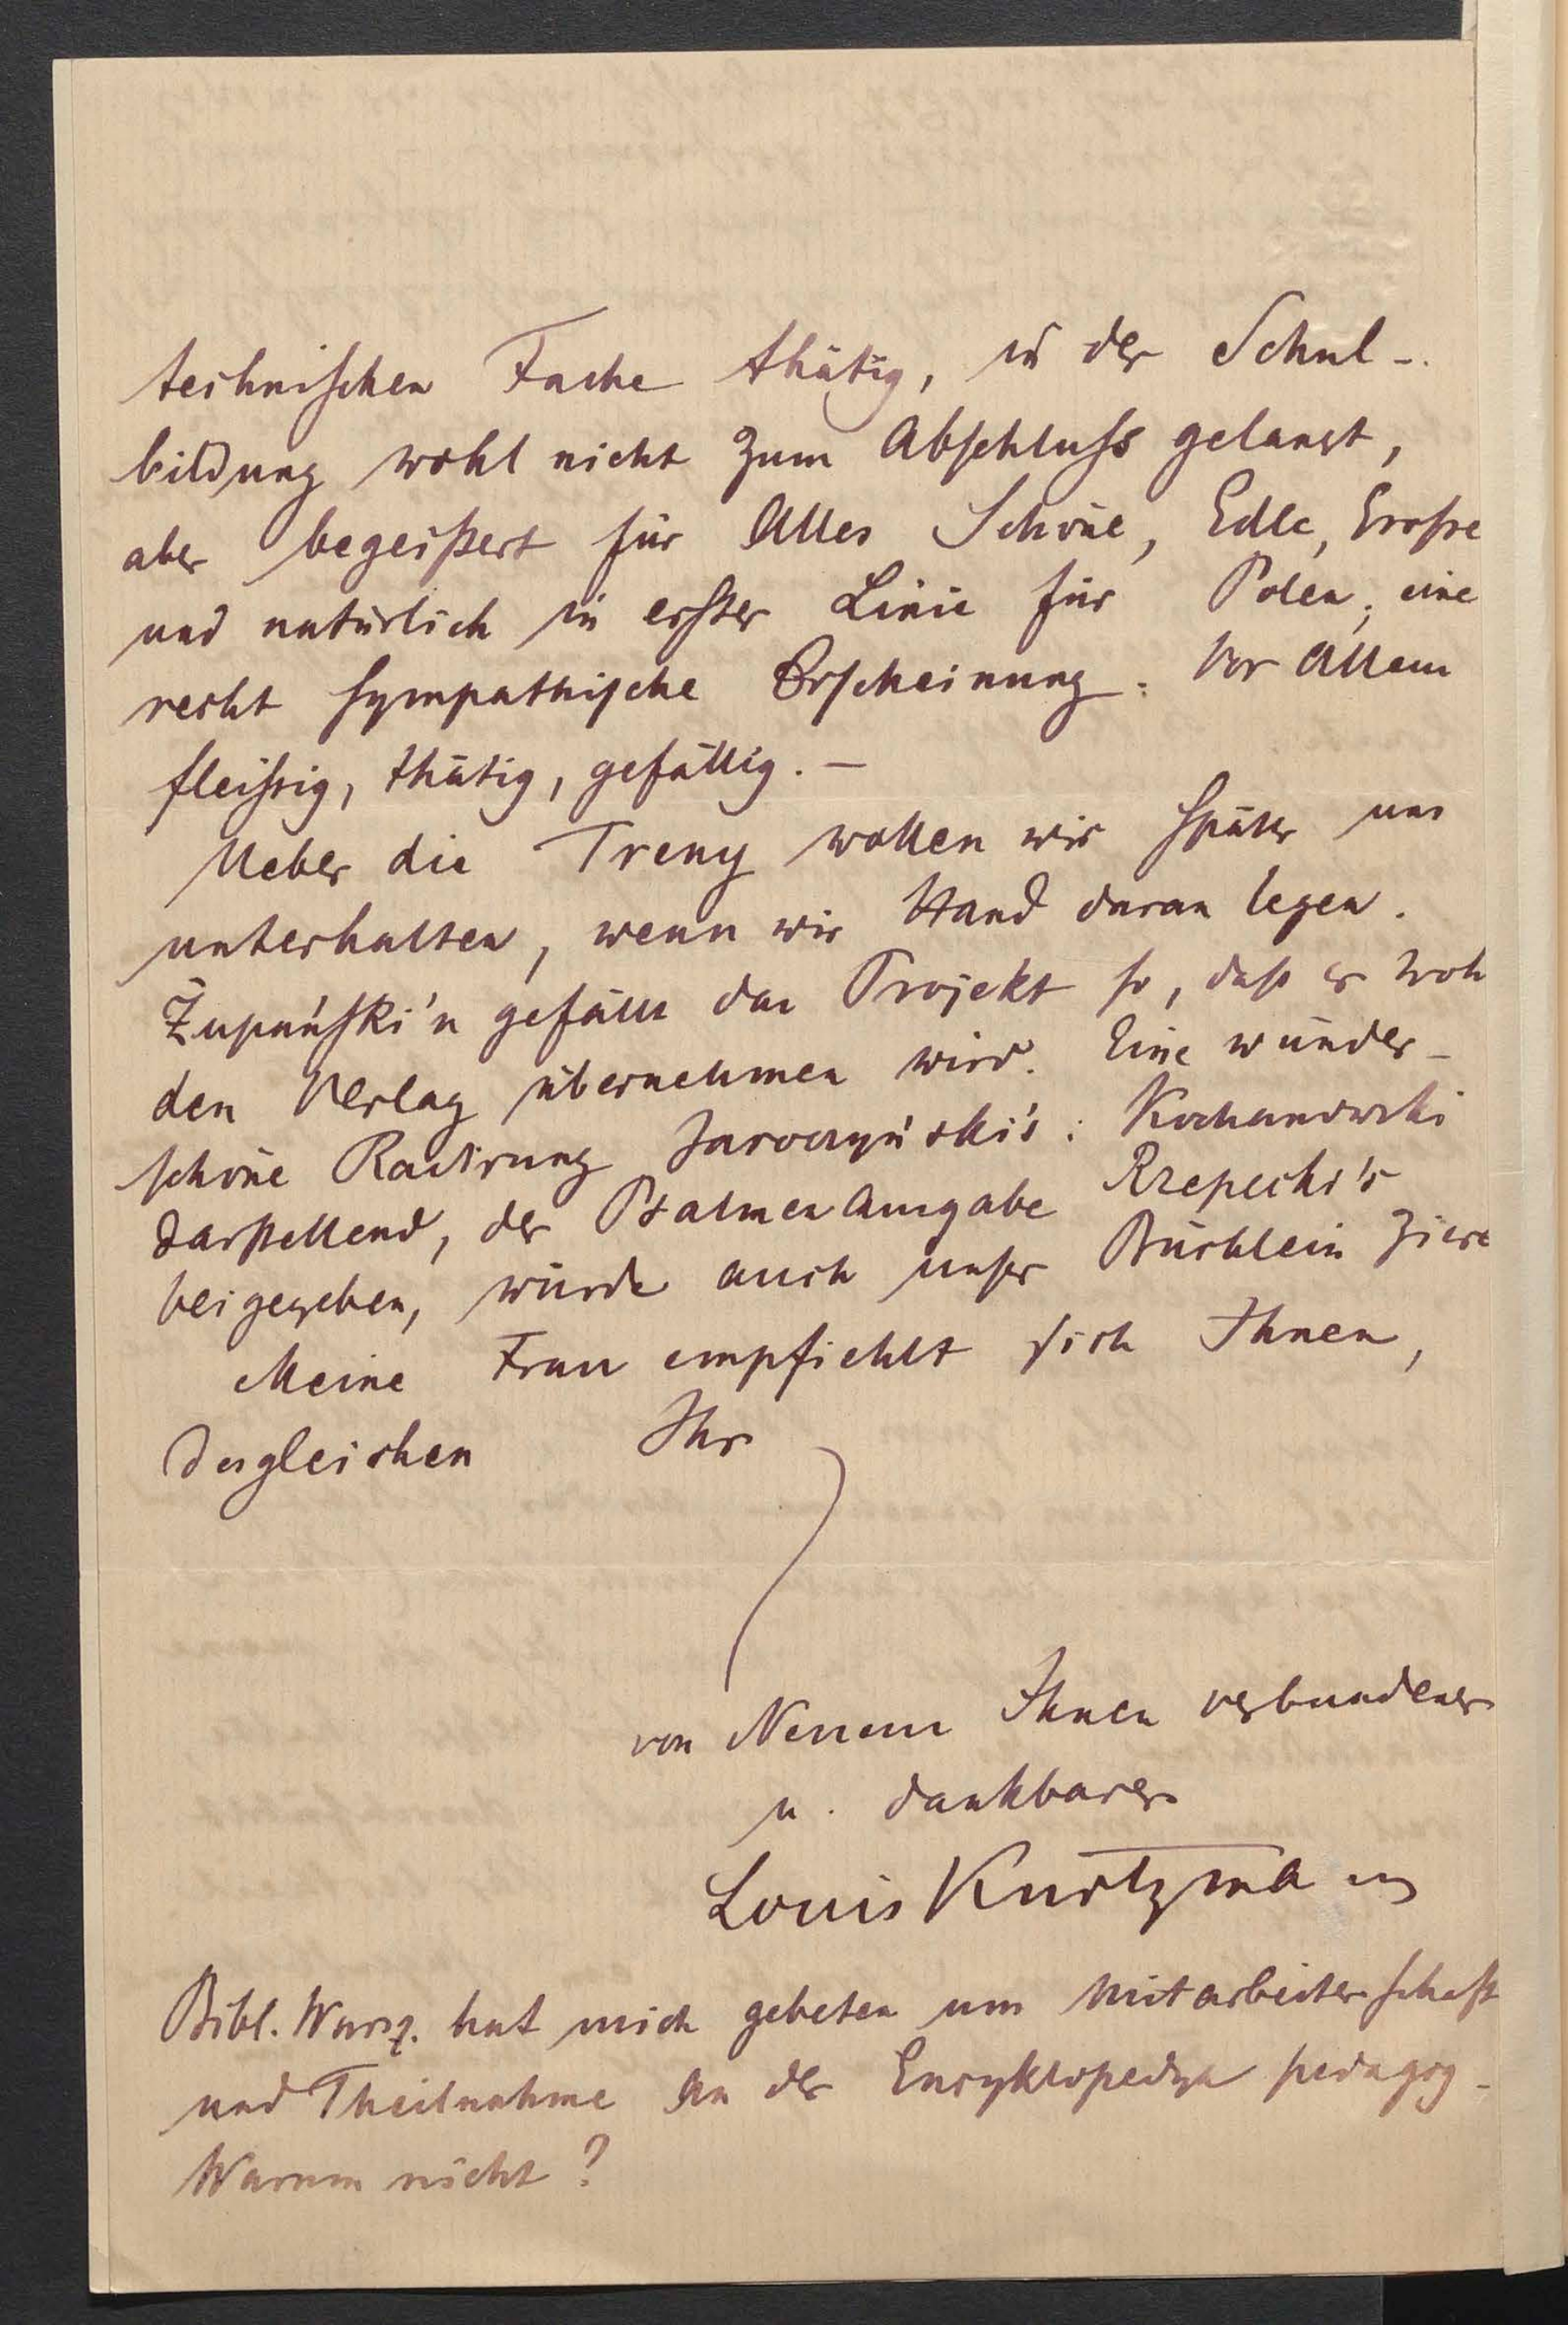 technischen Fache thätig, in der Schul-
bildung wohl nicht zum Abschluss gelangt,
aber begeistert für Alles Schöne, Edle, Grosse
und natürlich in erster Linie für Polen; eine
recht sympathische Erscheinung. Vor Allem
fleissig, thätig, gefällig. —
Ueber die Treny wollen wir später uns
unterhalten, wenn wir Hand daran legen.
Żupański'n gefällt das Projekt so, dass er woh
den Verlag übernehmen wird. Eine wunder-
schöne Radirung Jaroczyński's: Kochanowski
darstellend, der Psalmen Ausgabe Rzepecki's
beigegeben, würde auch unser Büchlein ziere
Meine Frau empfiehlt sich Ihnen,
desgleichen Ihr
von Neuem Ihnen verbundener
u. dankbarer
Louis Kurtzmann
Bibl. Warsz. hat mich gebeten um Mitarbeiterschaft
und Theilnahme an der Encyklopedya pedagog-
Warum nicht?